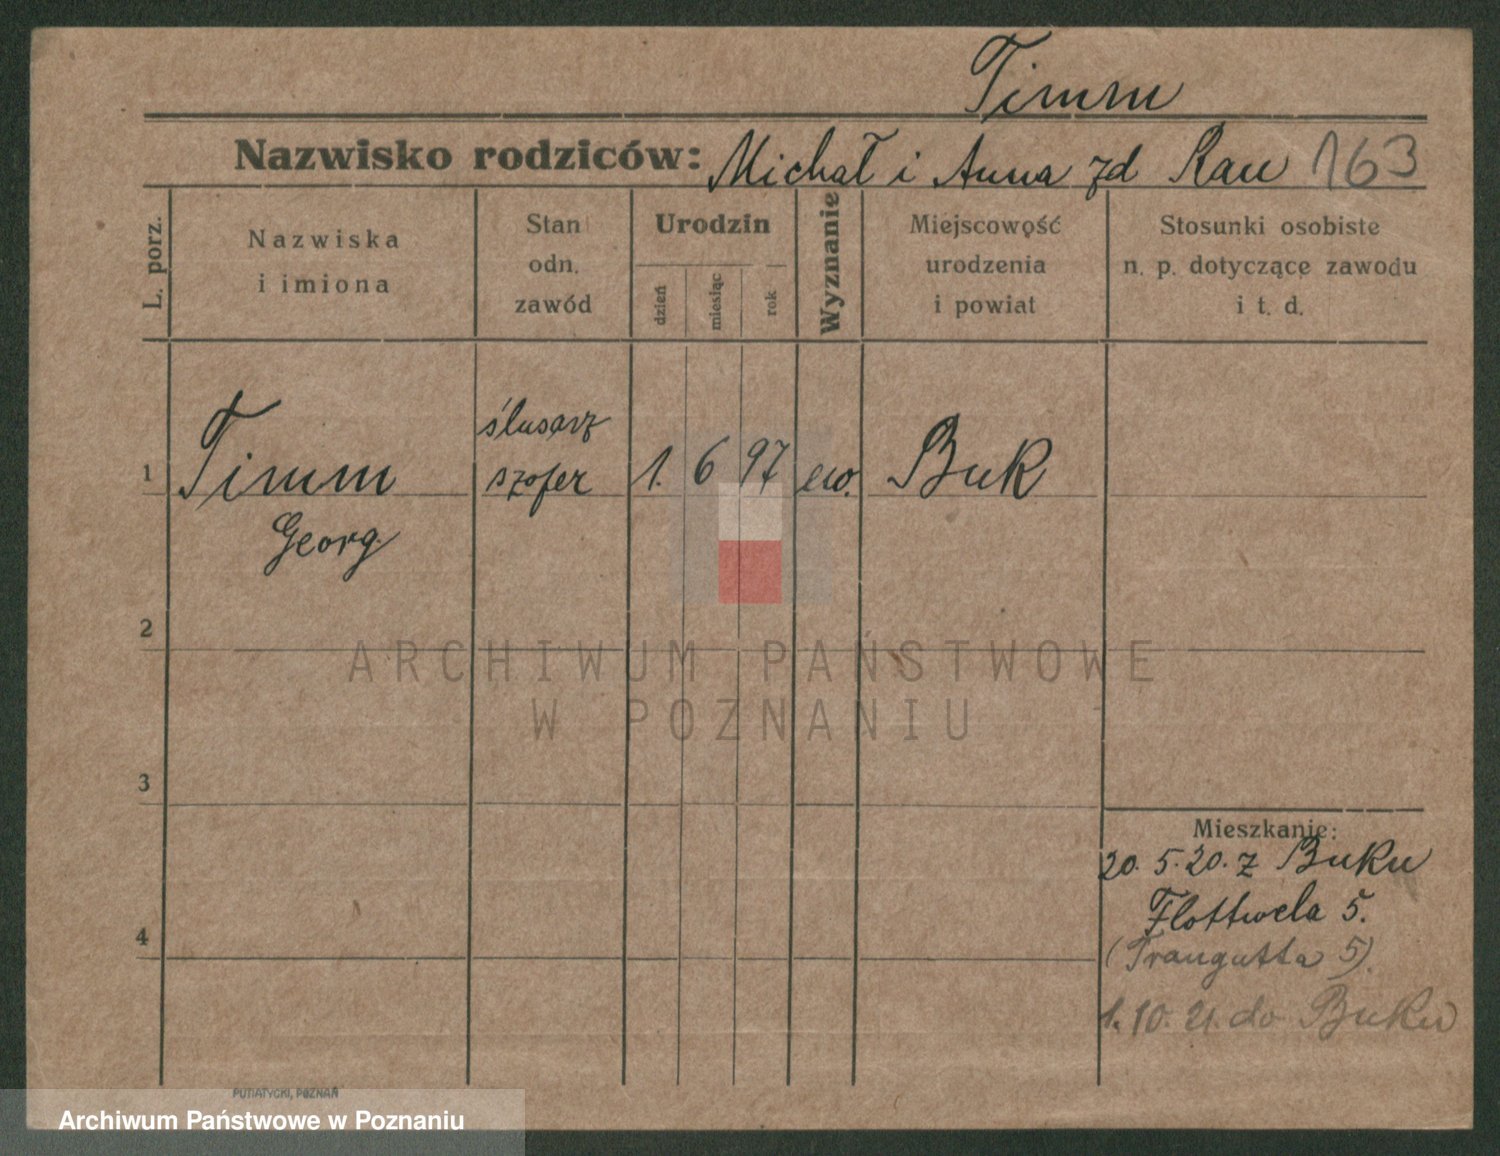 Timm
Nazwisko rodziców: Michał i Anna zd Rau 163
L. porz.
Nazwiska
i imiona
Stan
odn.
zawód
Urodzin
dzień
miesiąc
rok
Wyznanie
Miejscowość
urodzenia
i powiat
Stosunki osobiste
n. p. dotyczące zawodu
i t. d.
1 Timm
Georg
ślusarz
szofer
1. 6 97 ew. Buk
2
3
4
Mieszkanie:
20. 5. 20. z Buku
Flottwela 5.
(Traugutta 5).
1. 10. 21. do Buku
PUTIATYCKI, POZNAŃ
ARCHIWUM PAŃSTWOWE
W POZNANIU
Archiwum Państwowe w Poznaniu